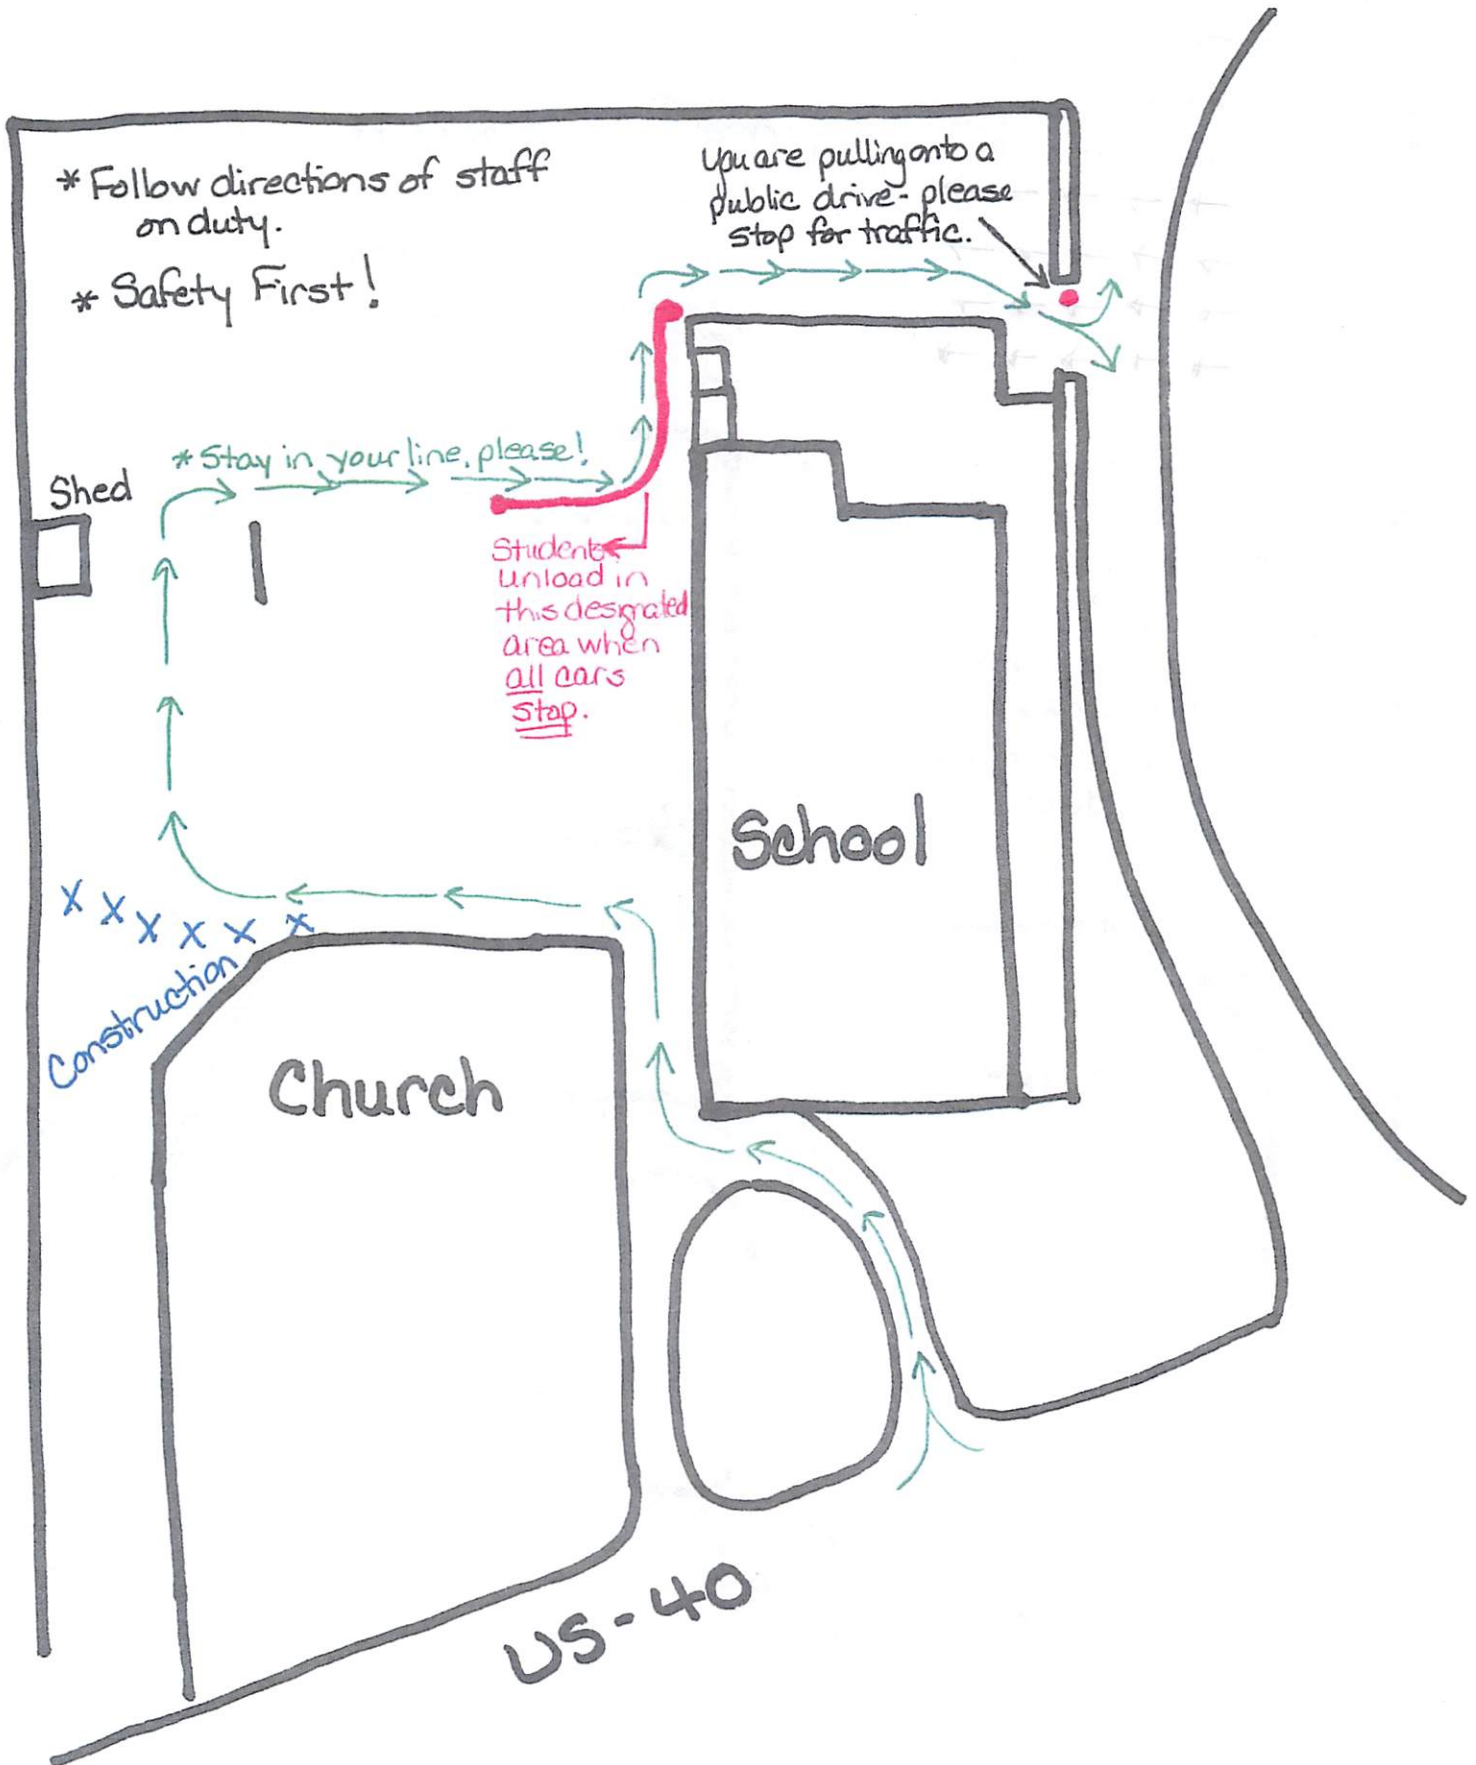 * Follow directions of staff
on duty.
* Safety First!
You are pulling onto a
public drive - please
stop for traffic.
* Stay in your line, please!
Shed
Students
unload in
this designated
area when
all cars
stop.
School
X X X X X X
Construction
Church
US-40